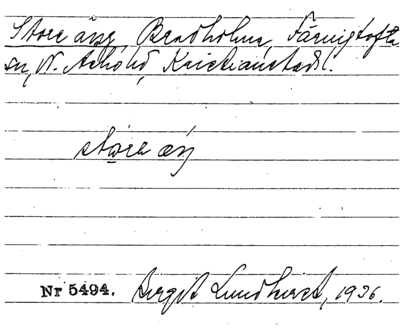 Store äng, Bradholma, Färingtofta
sn, N. Åsbo hd, Kristianstads l.
store äng
Nr 5494. Birgit Lundkvist, 1936.